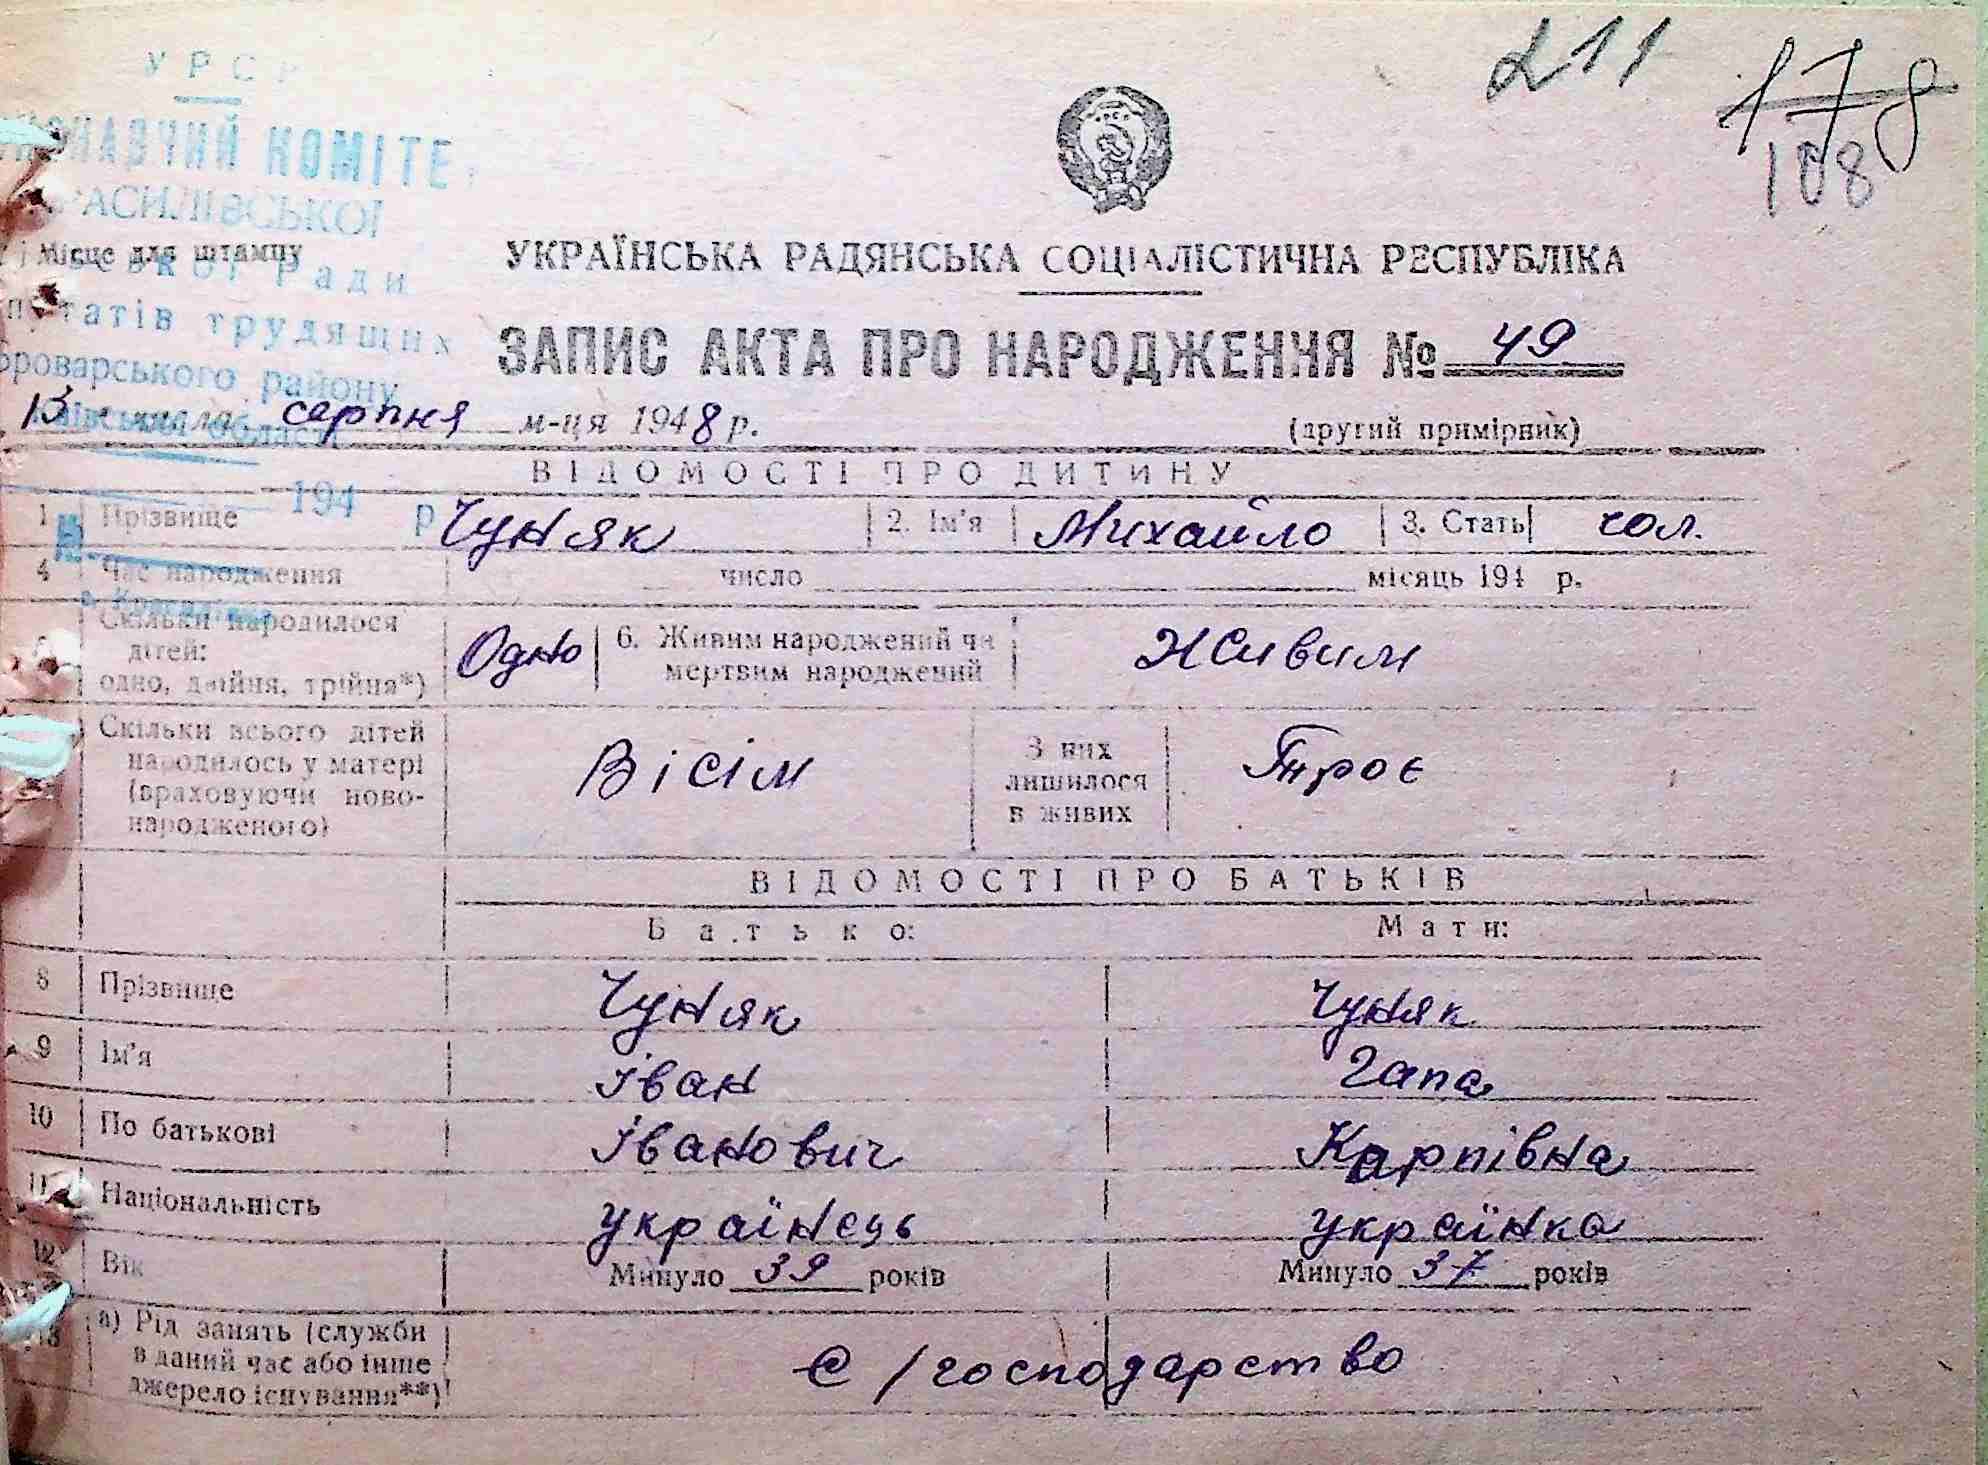 211
178
108
УРСР
КОМІТЕ
РАСИЛІВСЬКОЇ
Місце для штампу
Ради
трудящих
району
УКРАЇНСЬКА РАДЯНСЬКА СОЦІАЛІСТИЧНА РЕСПУБЛІКА
ЗАПИС АКТА ПРО НАРОДЖЕННЯ № 49
13 числа серпня м-ця 1948 р.
(другий примірник)
ВІДОМОСТІ ПРО ДИТИНУ
194 р
1 Прізвище Чуняк 2. Ім'я Михайло 3. Стать чол.
4 Час народження число місяць 194 р.
Скільки народилося дітей: одно, двійня, трійня*) Одно 6. Живим народжений чи мертвим народжений Живим
Скільки всього дітей народилось у матері (враховуючи ново-народженого) Вісім З них лишилося в живих Троє
ВІДОМОСТІ ПРО БАТЬКІВ
Батько: Мати:
8 Прізвище Чуняк Чуняк
9 Ім'я Іван Гапа
10 По батькові Іванович Карпівна
11 Національність українець українка
12 Вік Минуло 39 років Минуло 37 років
13 а) Рід занять (служби в даний час або інше джерело існування**) с/господарство